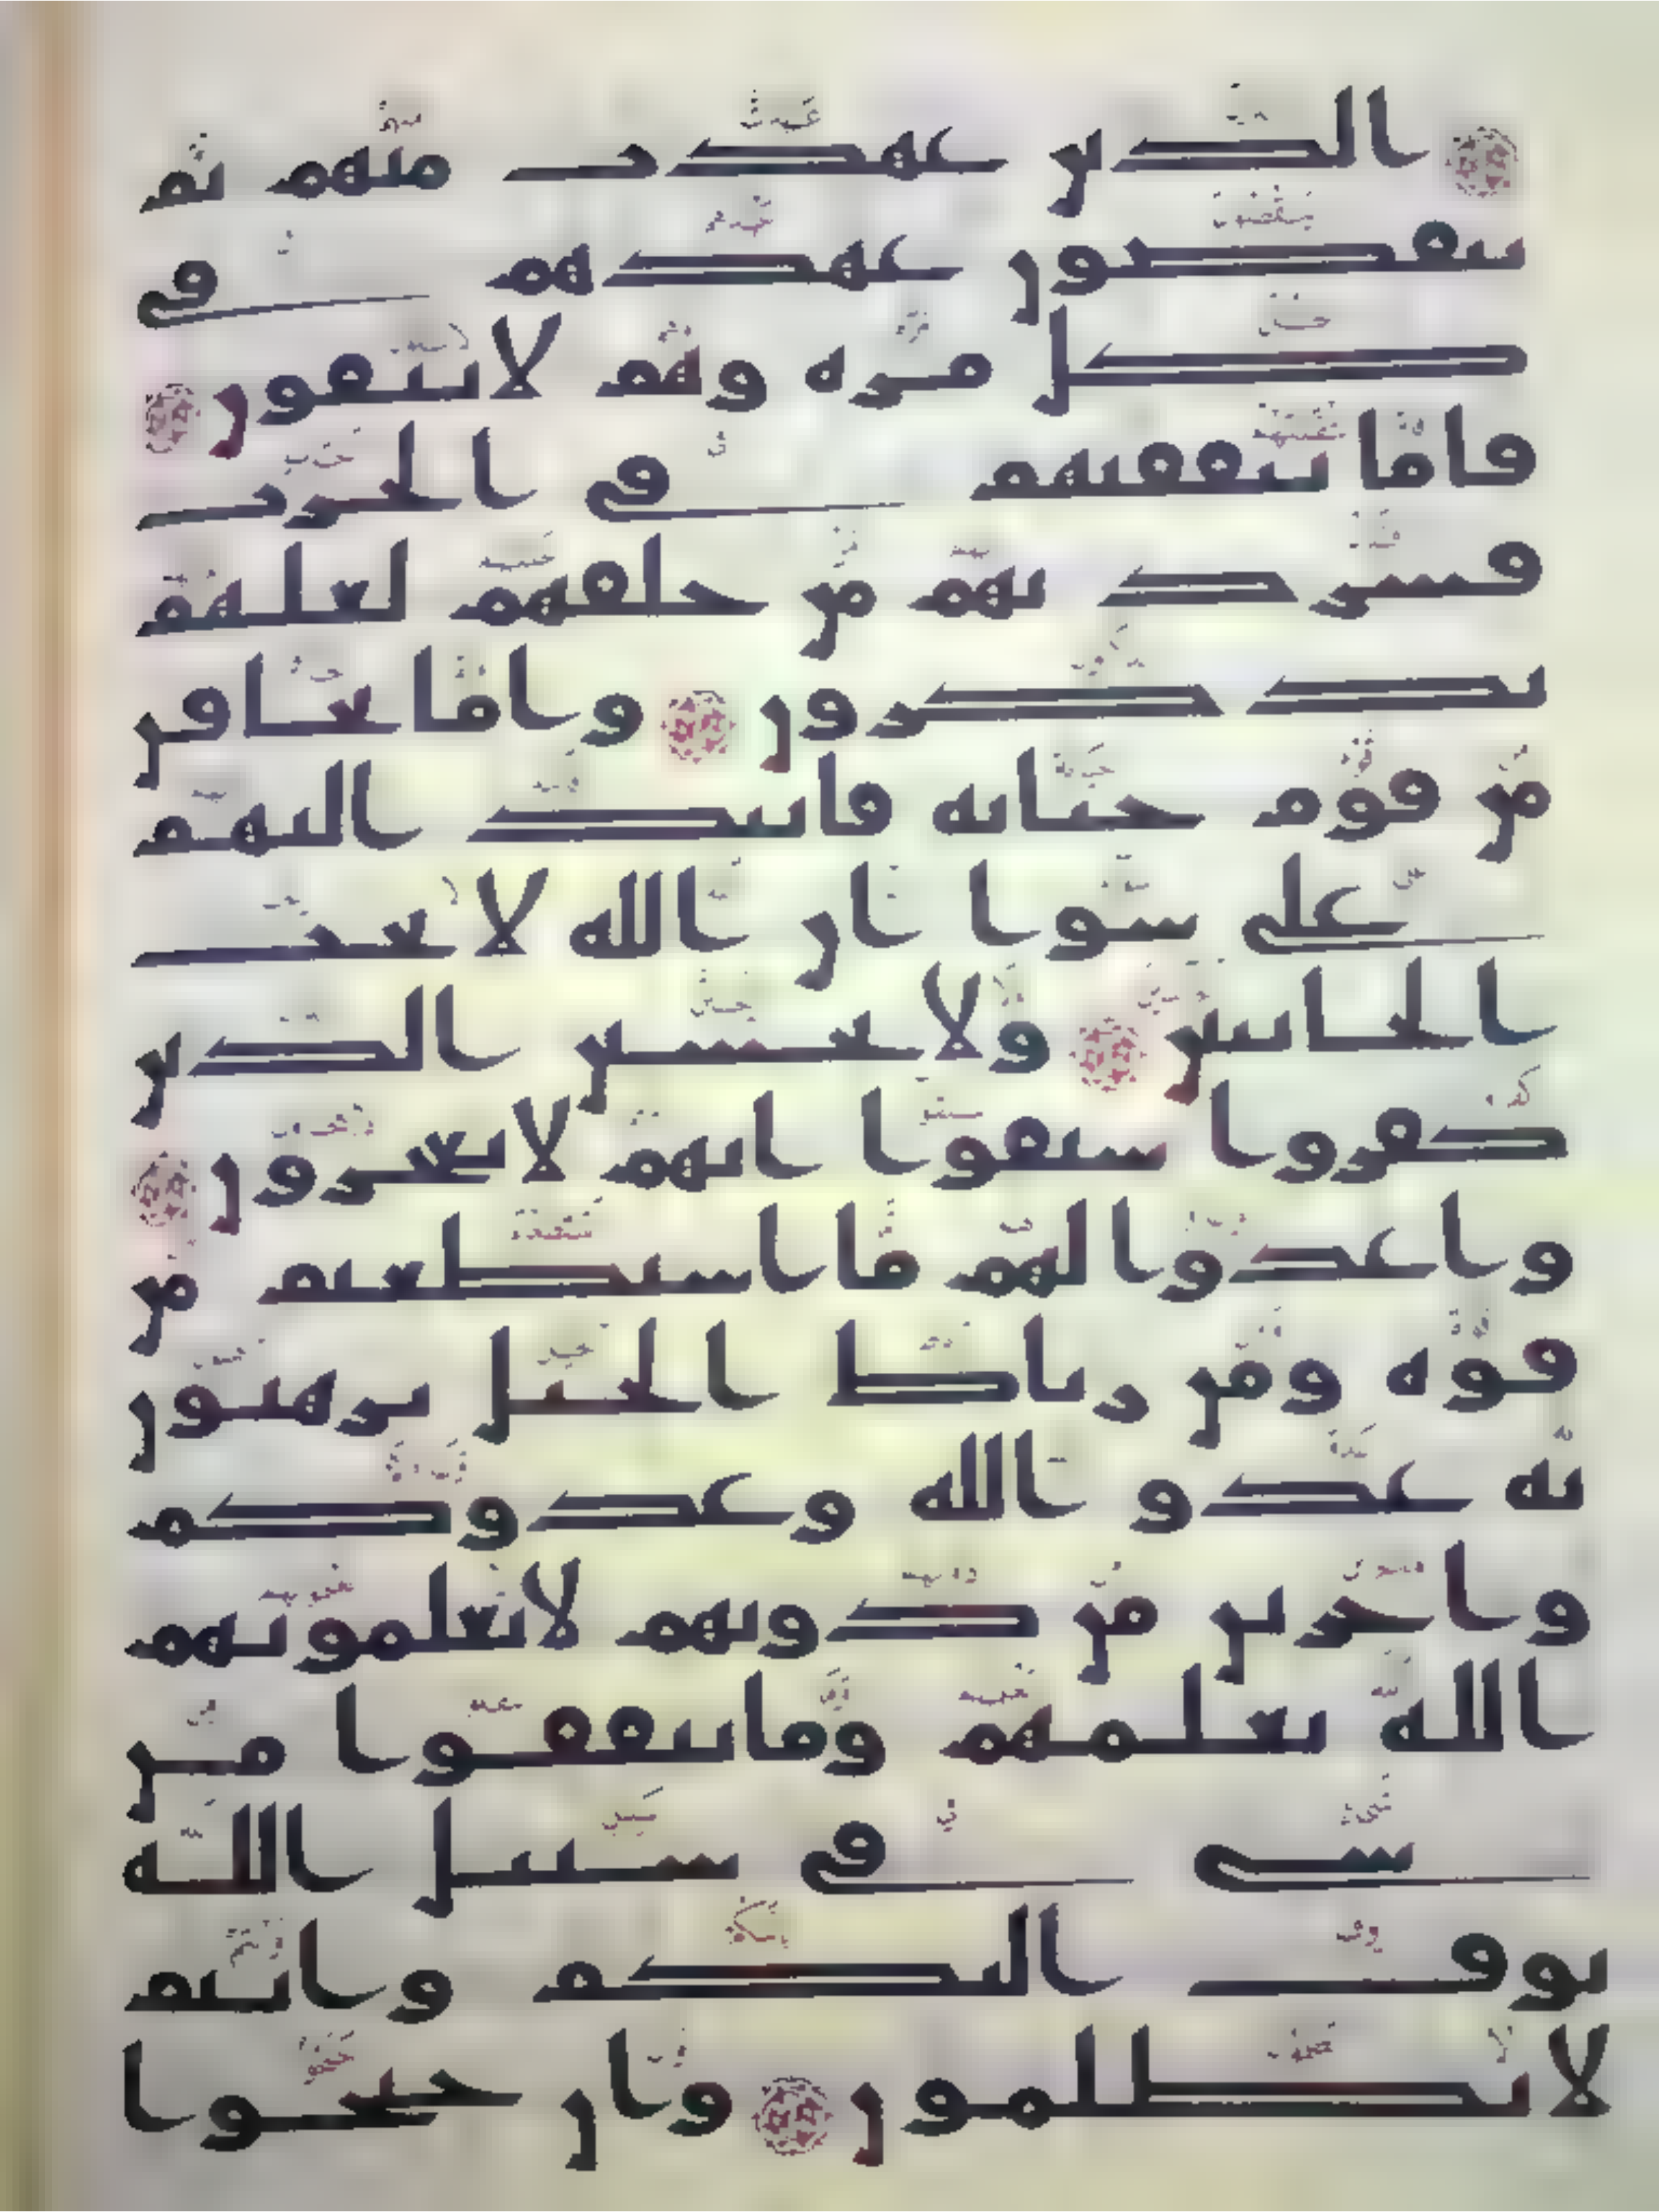 الذين عهدت منهم ثم
ينقضون عهدهم في
كل مرة وهم لا يتقون
فاما تثقفنهم في الحرب
فشرد بهم من خلفهم لعلهم
يذكرون واما تخافن
من قوم خيانة فانبذ اليهم
على سوا ان الله لا يحب
الخائنين ولا تحسبن الذين
كفروا سبقوا انهم لا يعجزون
واعدوا لهم ما استطعتم من
قوة ومن رباط الخيل ترهبون
به عدو الله وعدوكم
واخرين من دونهم لا تعلمونهم
الله يعلمهم وما تنفقوا من
شي في سبيل الله
يوف اليكم وانتم
لا تظلمون وان جنحوا